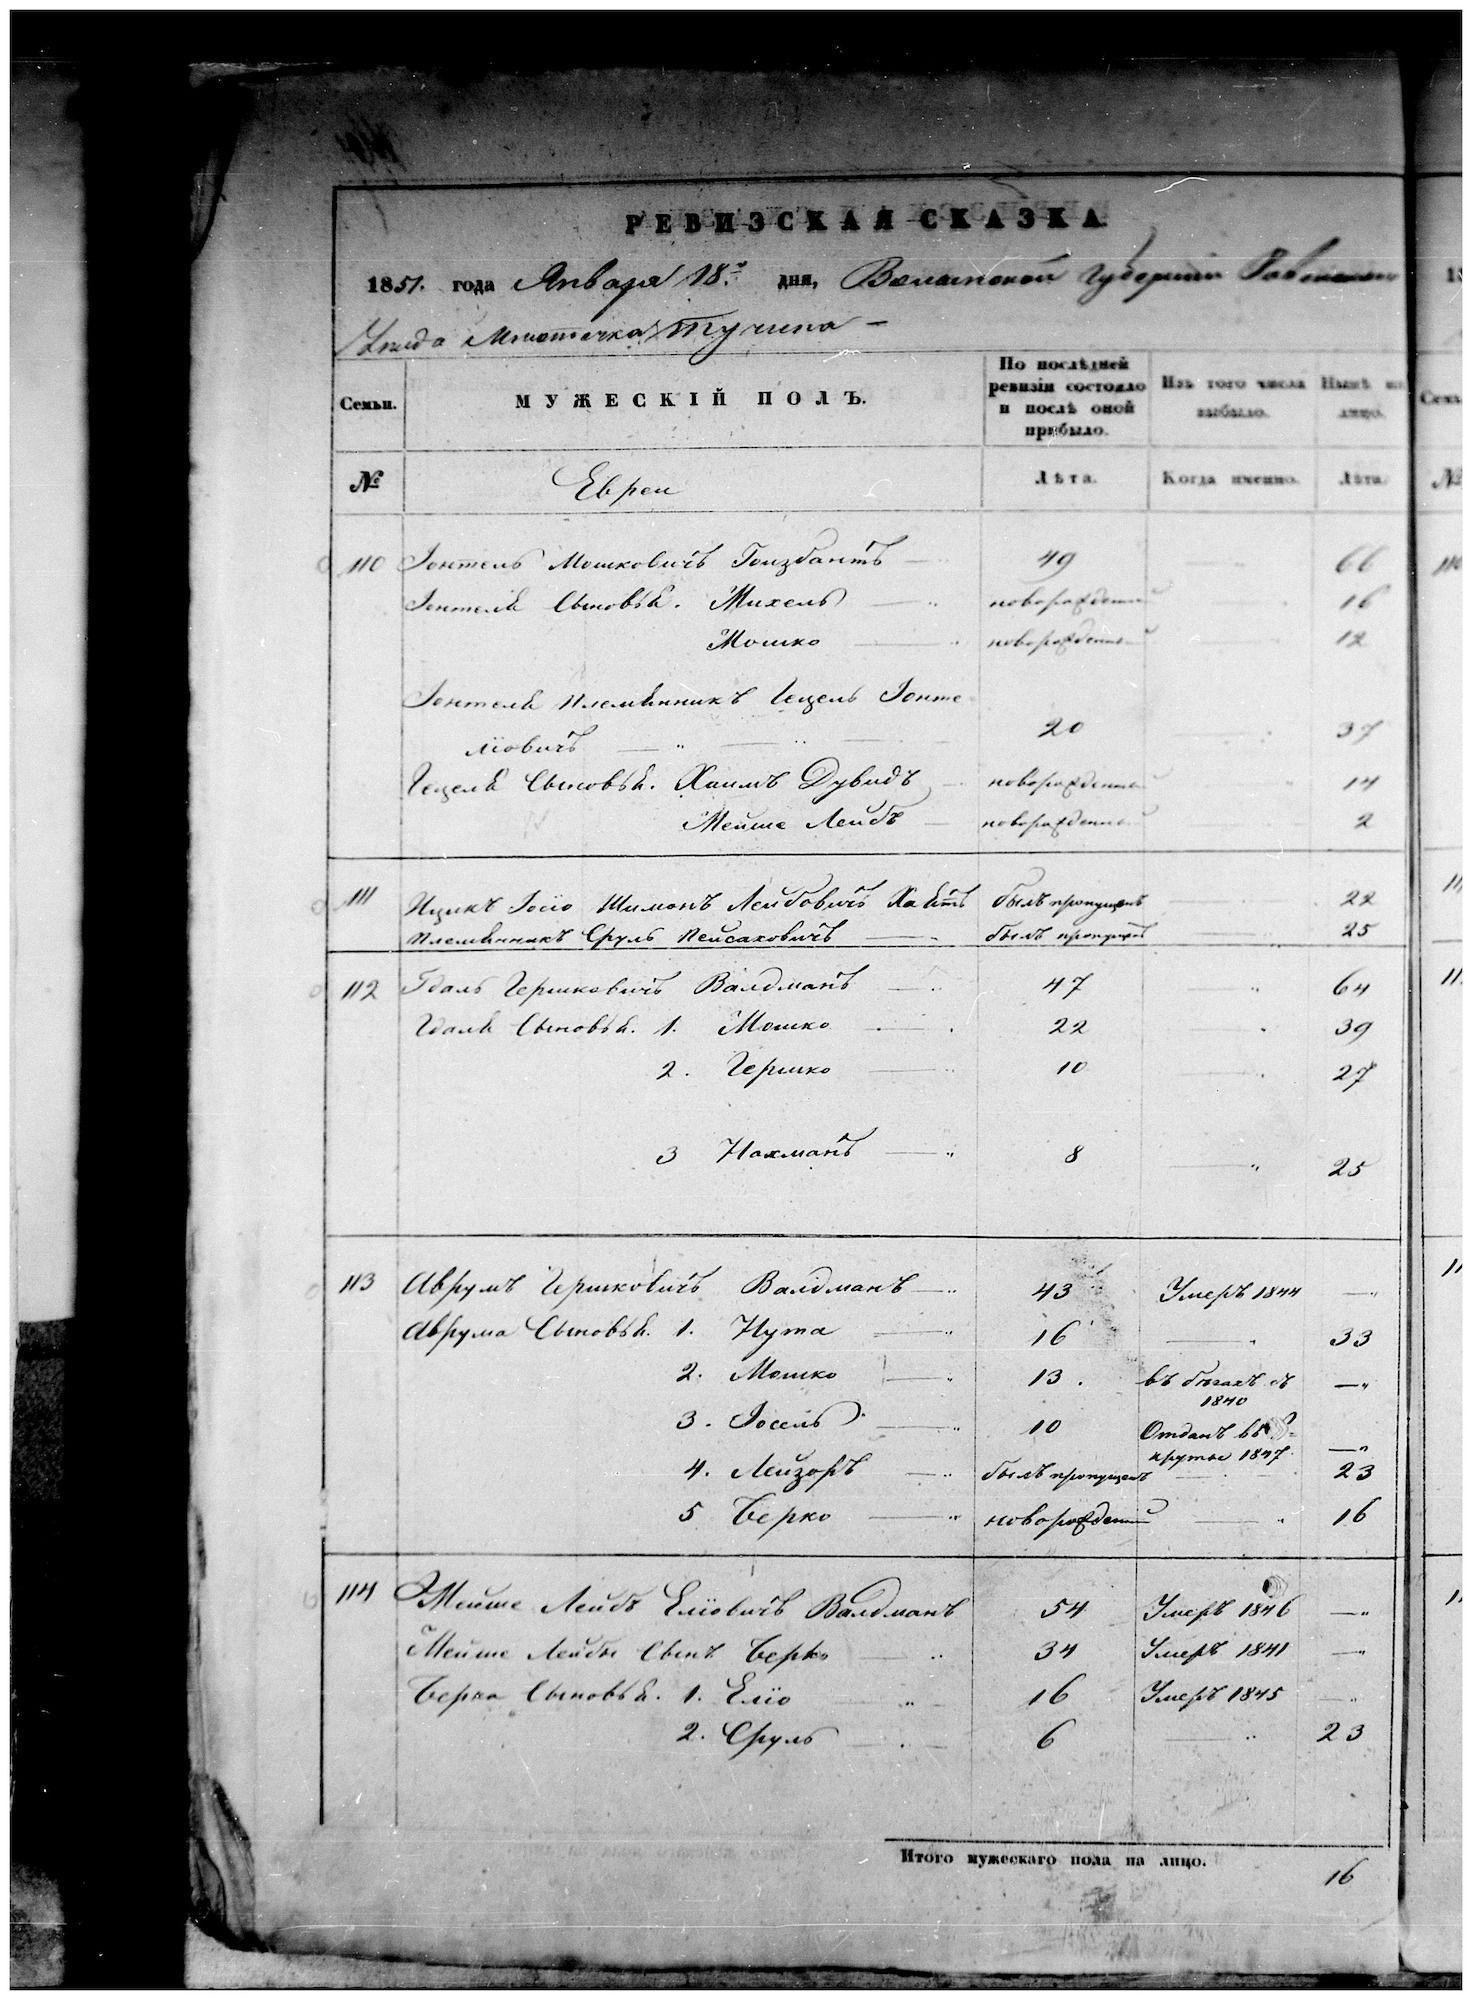 РЕВИЗСКАЯ СКАЗКА
1851. года Января 18. дня, Волынской Губернии Ровенскаго
Уезда Местечка Тучина
Семьи.
МУЖЕСКІЙ ПОЛЪ.
По послѣдней ревизіи состояло и послѣ оной прибыло.
Изъ того числа выбыло.
Нынѣ на лицо.
№ Евреи Лѣта. Когда именно. Лѣта.
110 Іонтель Мошковичъ 49 66
Іонтеля Сыновья. Михель новорожденный 16
Мошко новорожденный 12
Іонтеля Племянникъ Гецель Іонте
ліовичъ 20 37
Гецеля Сыновья. Хаимъ Дувидъ новорожденный 14
Мейше Лейбъ новорожденный 2
111 Ицикъ Іосіо Шимонъ Лейбовичъ былъ пропущенъ 22
Племянникъ Сруль Пейсаховичъ былъ пропущенъ 25
112 Гдаль Гершковичъ Валдманъ 47 64
Гдаля Сыновья. 1. Мошко 22 39
2. Гершко 10 27
3 Нахманъ 8 25
113 Аврумъ Гершковичъ Валдманъ 43 Умеръ 1844
Аврума Сыновья. 1. Нута 16 33
2. Мошко 13. въ бегахъ съ
1840
3. Іосель 10 Отданъ въ
круты 1847.
4. Лейзоръ былъ пропущенъ 23
5 Берко новорожденный 16
114 Мейше Лейбъ Еліовичъ Валдманъ 54 Умеръ 1846
Мейше Лейбы Сынъ Берко 34 Умеръ 1841
Берка Сыновья. 1. Еліо 16 Умеръ 1845
2. Сруль 6 23
Итого мужескаго пола на лицо.
16